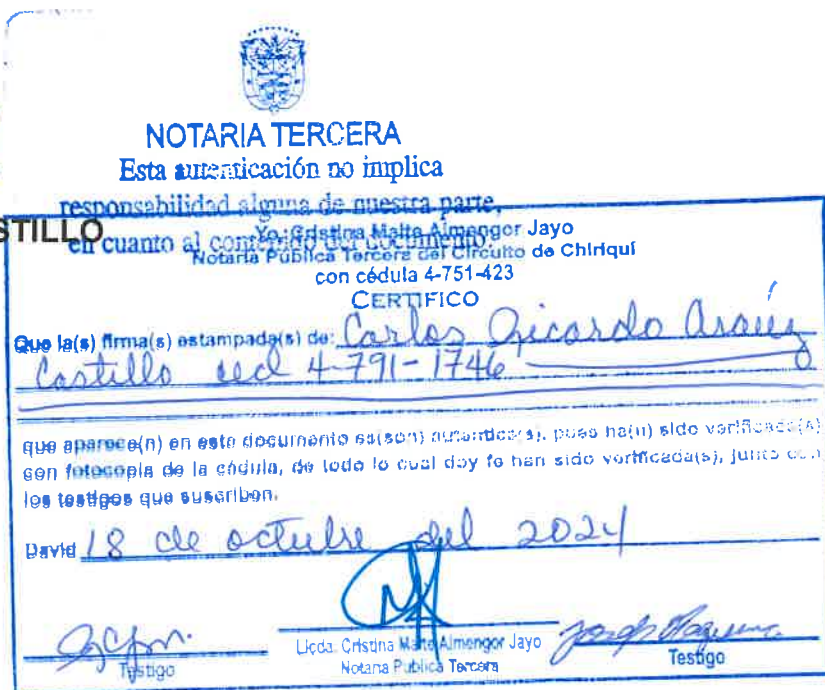 NOTARIA TERCERA
Esta autenticación no implica
responsabilidad alguna de nuestra parte,
en cuanto al contenido del documento.
STILLO
Yo, Cristina Maite Almengor Jayo
Notaria Pública Tercera del Circuito de Chiriquí
con cédula 4-751-423
CERTIFICO
Que la(s) firma(s) estampada(s) de: Carlos Ricardo Araúz
Castillo ced 4-791-1746
que aparece(n) en este documento es(son) autentica(s), pues ha(n) sido verificada(s)
con fotocopia de la cédula, de todo lo cual doy fe han sido verificada(s), junto con
los testigos que suscriben.
David 18 de octubre del 2024
Testigo
Licda. Cristina Maite Almengor Jayo
Notaria Pública Tercera
Testigo